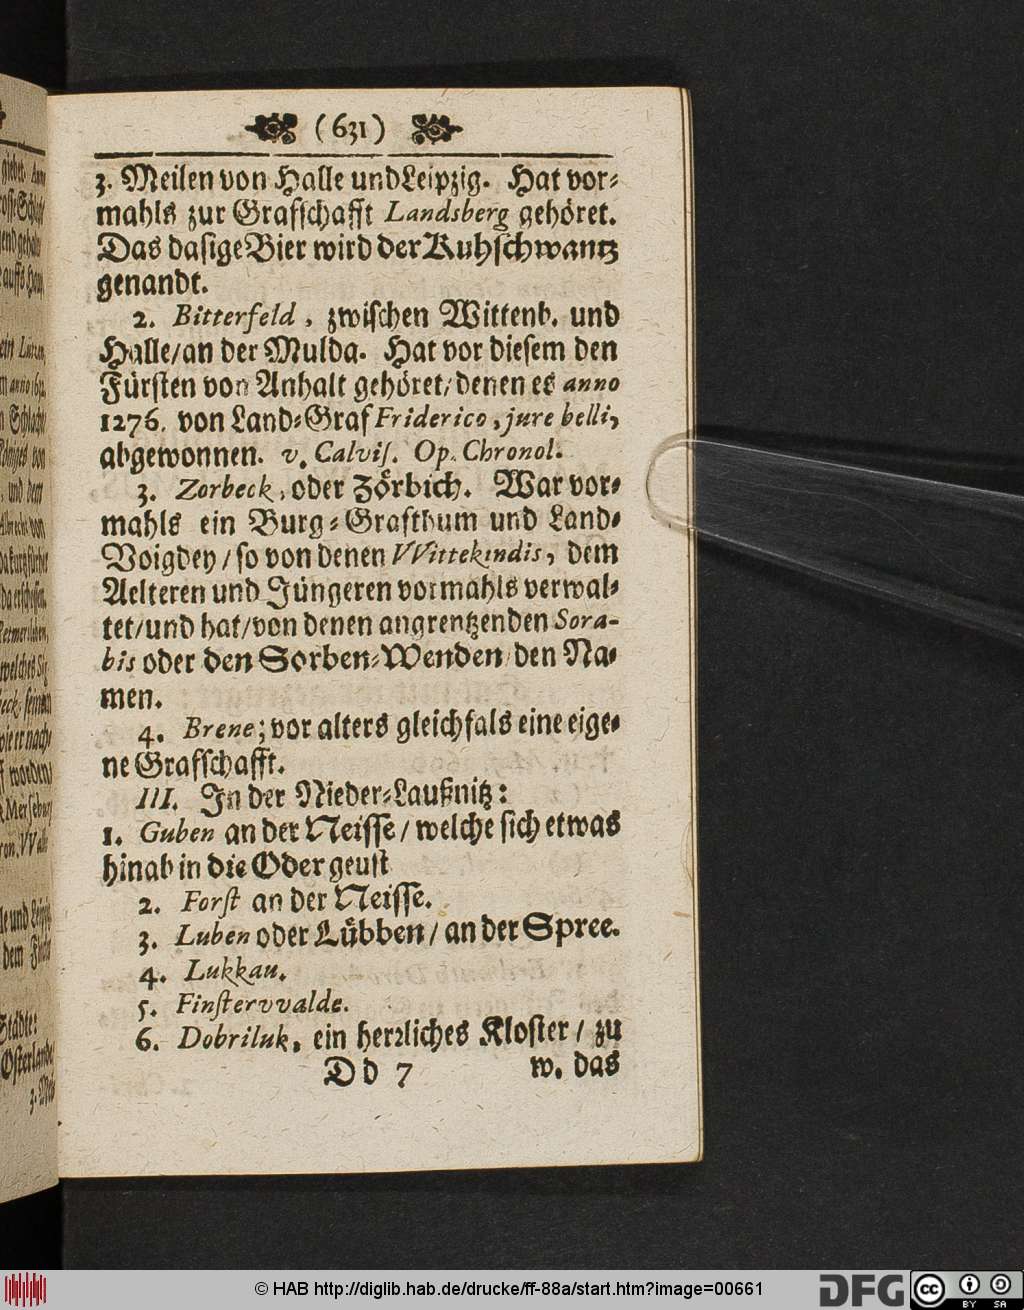 (631)
3. Meilen von Halle und Leipzig. Hat vor⸗
mahls zur Grafschafft Landsberg gehöret.
Das dasige Bier wird der Kuhschwantz
genandt.
2. Bitterfeld, zwischen Wittenb. und
Halle/an der Mulda. Hat vor diesem den
Fürsten von Anhalt gehöret/denen es anno
1276. von Land⸗Graf Friderico, jure belli,
abgewonnen. v. Calvis. Op. Chronol.
3. Zorbeck, oder Zörbich. War vor⸗
mahls ein Burg⸗Grafthum und Land⸗
Voigdey/so von denen VVittekindis, dem
Aelteren und Jüngeren vormahls verwal⸗
tet/und hat/von denen angrentzenden Sora-
bis oder den Sorben⸗Wenden den Na⸗
men.
4. Brene; vor alters gleichfals eine eige⸗
ne Grafschafft.
III. In der Nieder⸗Laußnitz:
1. Guben an der Neisse/welche sich etwas
hinab in die Oder geust
2. Forst an der Neisse.
3. Luben oder Lübben/an der Spree.
4. Lukkau.
5. Finstervvalde.
6. Dobriluk, ein herrliches Kloster/zu
Dd 7 w. das
© HAB http://diglib.hab.de/drucke/ff-88a/start.htm?image=00661
DFG
cc BY SA